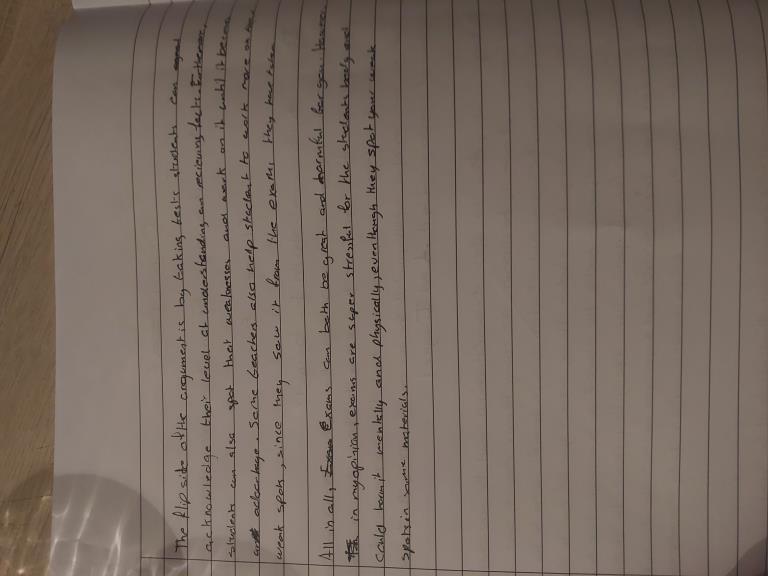 The flip site of the argument is by taking tests students can
acknowledge their level at understanding an recieving facts. Furthermore,
students can also spot their weaknesses and work on it until it becomes
advantage. Some teachers also help student to work more on their
weak spot, since they saw it from the exams they have taken
All in all, Exams can both be great and harmful for you. However,
in my opinion, exams are super stressful for the students body and
could harm it mentally and physically, even though they spot your weak
spots in some materials.